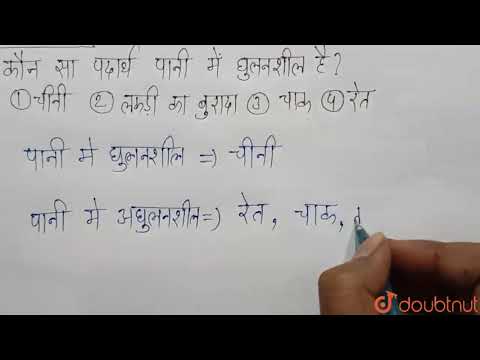 कौन सा पदार्थ पानी में घुलनशील है?
① चीनी ② लकड़ी का बुरादा ③ चाक ④ रेत
पानी मे घुलनशील => चीनी
पानी मे अघुलनशील => रेत, चाक,
doubtnut